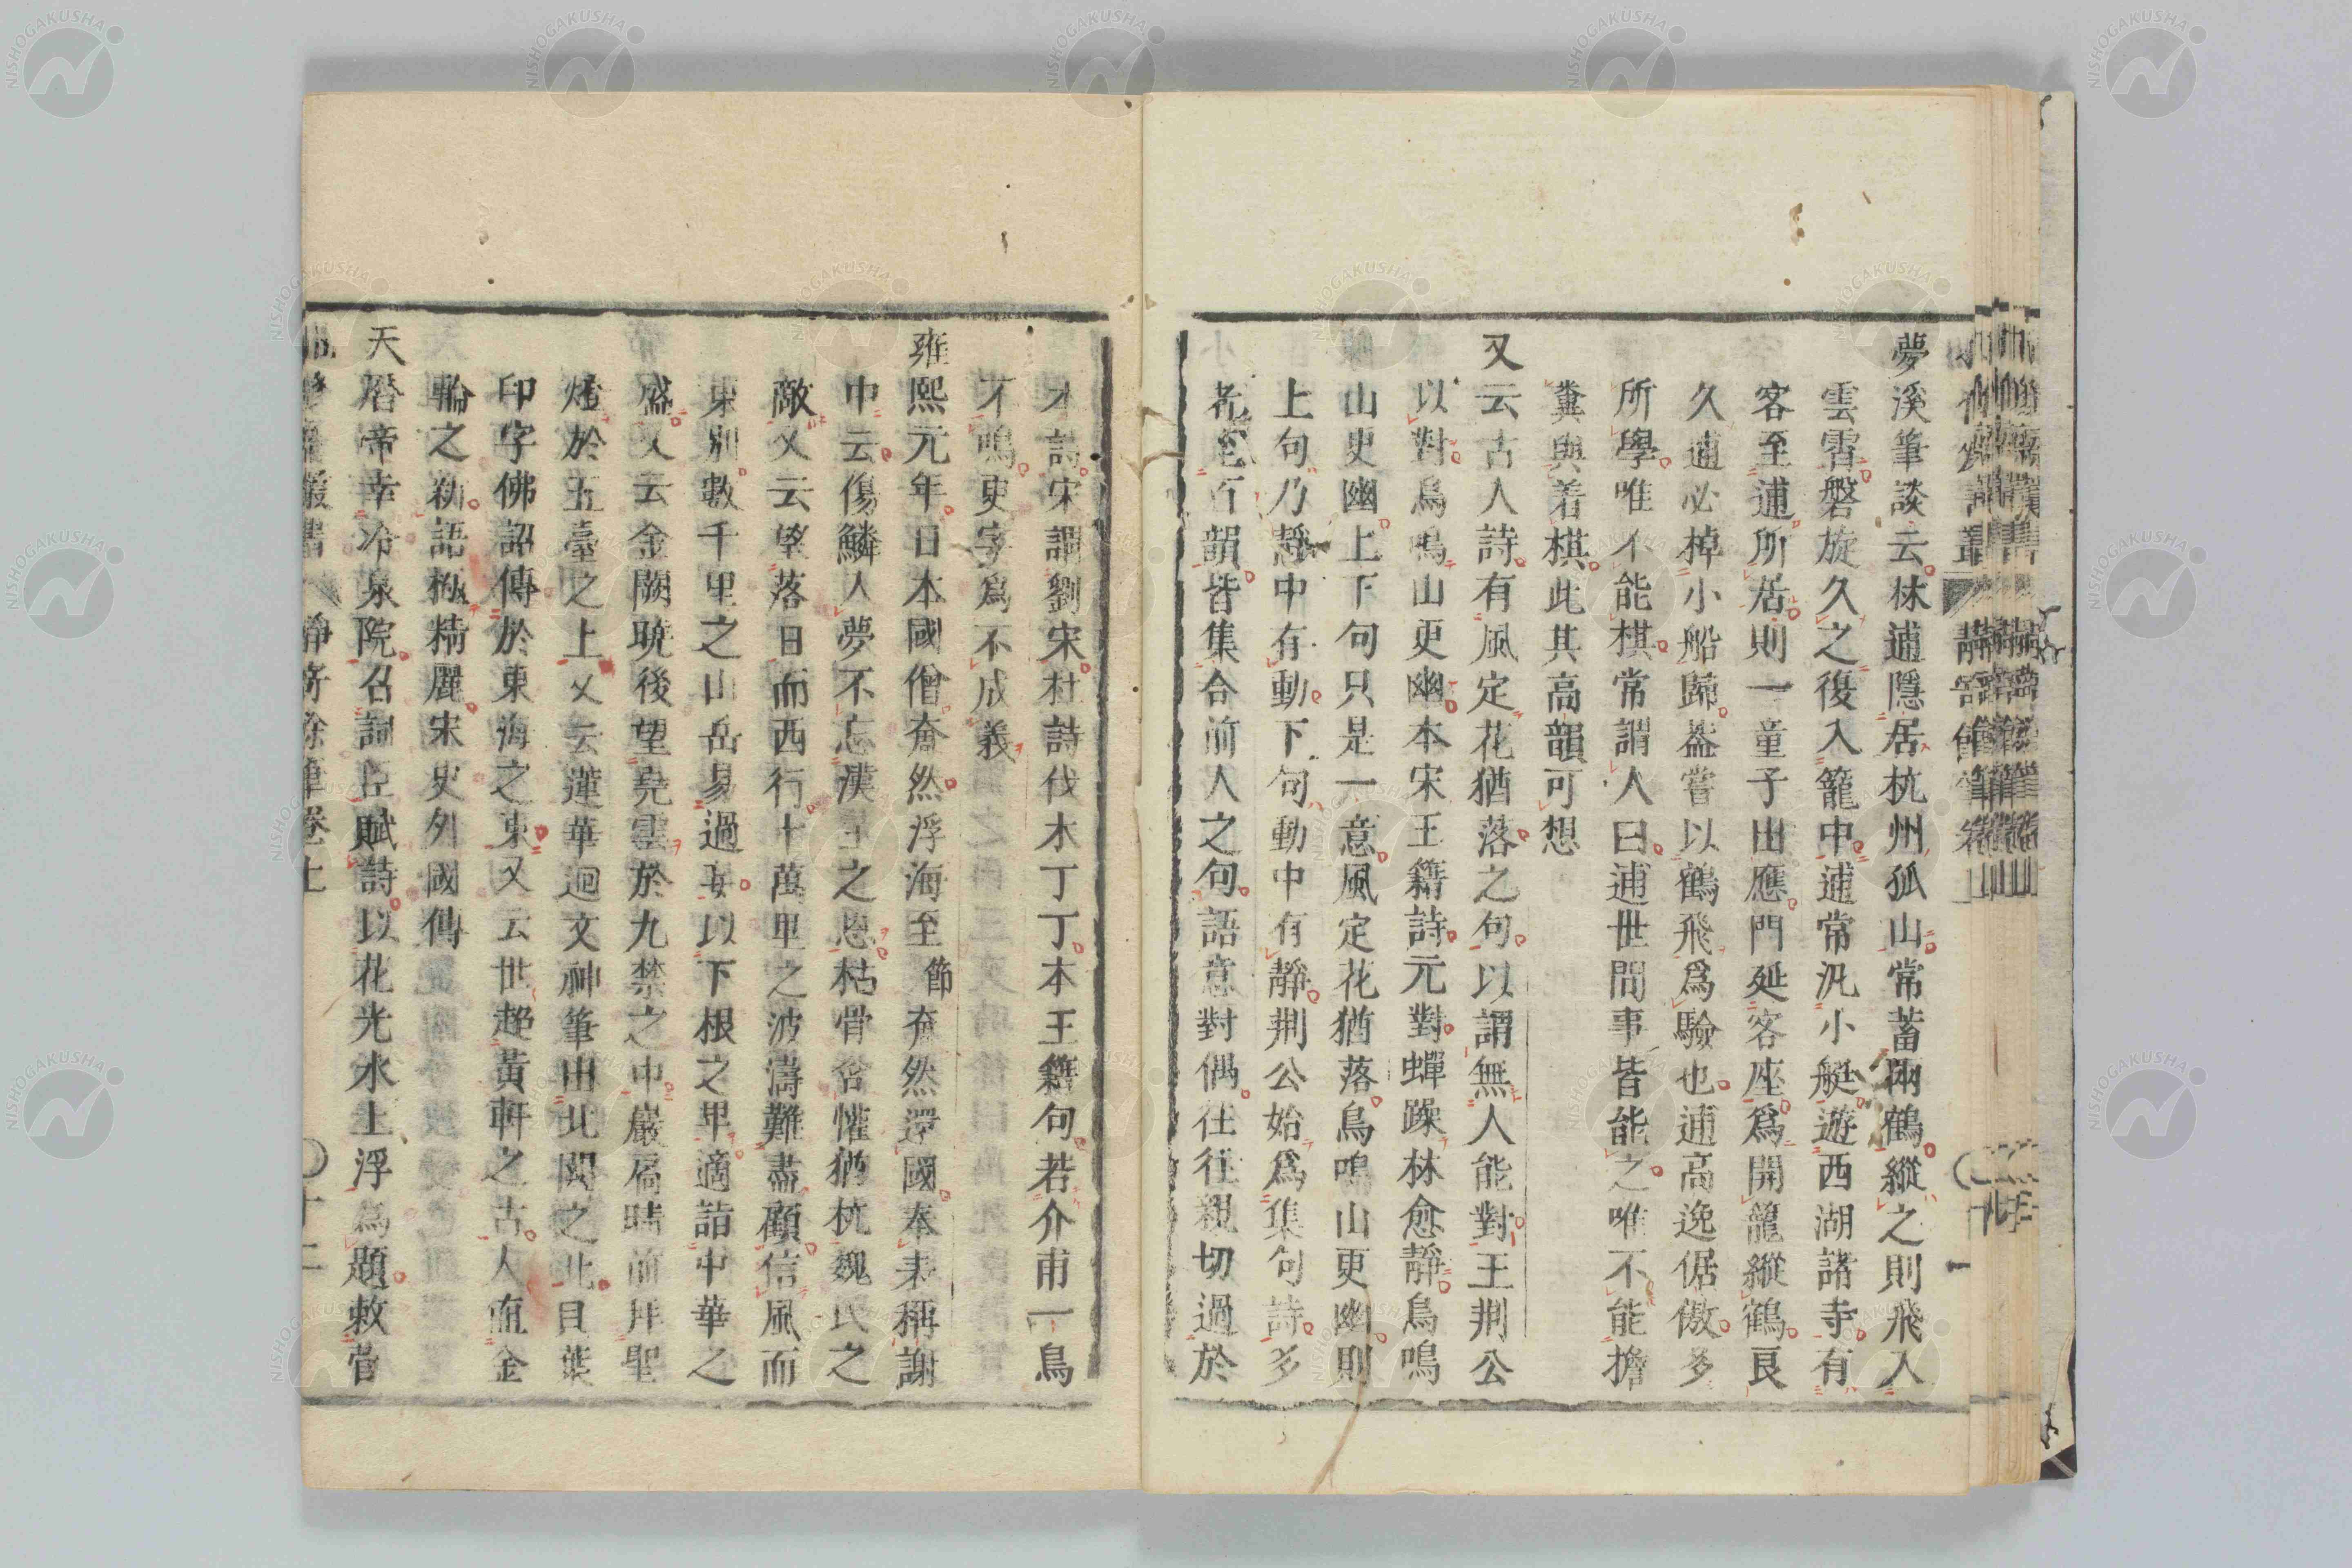 夢溪筆談云林逋隱居杭州孤山常蓄兩鶴縱之則飛入
雲霄磐旋久之復入籠中逋常汎小艇遊西湖諸寺有
客至逋所居則一童子出應門延客座爲開籠縱鶴良
久逋必棹小船歸葢嘗以鶴飛爲驗也逋高逸倨傲多
所學唯不能棋常謂人曰逋世間事皆能之唯不能擔
糞與着棋此其高韻可想
又云古人詩有風定花猶落之句以謂無人能對王荆公
以對鳥鳴山更幽本宋王籍詩元對蟬躁林愈靜鳥鳴
山更幽上下句只是一意風定花猶落鳥鳴山更幽則
上句乃靜中有動下句動中有靜荆公始爲集句詩多
者至百韻皆集合前人之句語意對偶往往親切過於
本詩宋謂劉宋杜詩伐木丁丁本王籍句若介甫一鳥
不鳴更字爲不成義
雍熙元年日本國僧奝然浮海至節奝然還國奉表稱謝
中云傷鱗入夢不忘漢主之恩枯骨合懽猶杭魏氏之
敵又云望落日而西行十萬里之波濤難盡顧信風而
東別數千里之山岳易過妄以下根之卑適詣中華之
盛又云金闕曉後望堯雲於九禁之中巖扃晴前拜聖
燈於五臺之上又云蓮華迴文神筆出北闕之北貝葉
印字佛詔傳於東海之東又云世超黃軒之古人直金
輪之新語極精麗宋史外國傳
天啓帝幸冷泉院召詞臣賦詩以花光水上浮爲題敕菅
靜齋餘筆卷上
〇十二